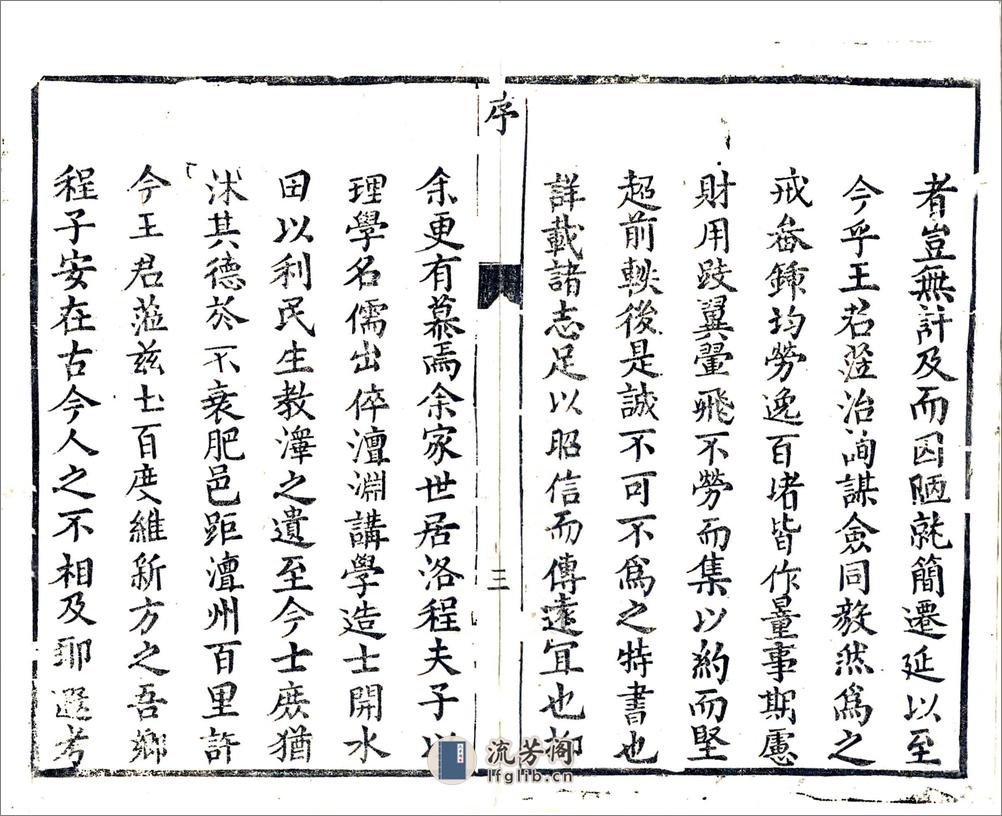 者豈無計及而因陋就簡遷延以至
今乎王君蒞治詢謀僉同毅然爲之
戒畚鍾均勞逸百堵皆作量事期慮
財用跂翼翬飛不勞而集以約而堅
超前軼後是誠不可不爲之特書也
詳載諸志足以昭信而傳遠宜也抑
序
三
余更有慕焉余家世居洛程夫子以
理學名儒出倅澶淵講學造士開水
田以利民生教澤之遺至今士庶猶
沭其德於不衰肥邑距澶州百里許
今王君蒞兹土百度維新方之吾鄉
程子安在古今人之不相及耶遐考
流芳阁
lfglib.cn